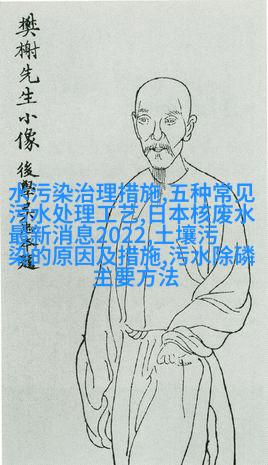 樊榭先生小像
後學
水污染治理措施,五种常见
污水处理工艺,日本核废水
最新消息2022,土壤污
染的原因及措施,污水除磷
主要方法